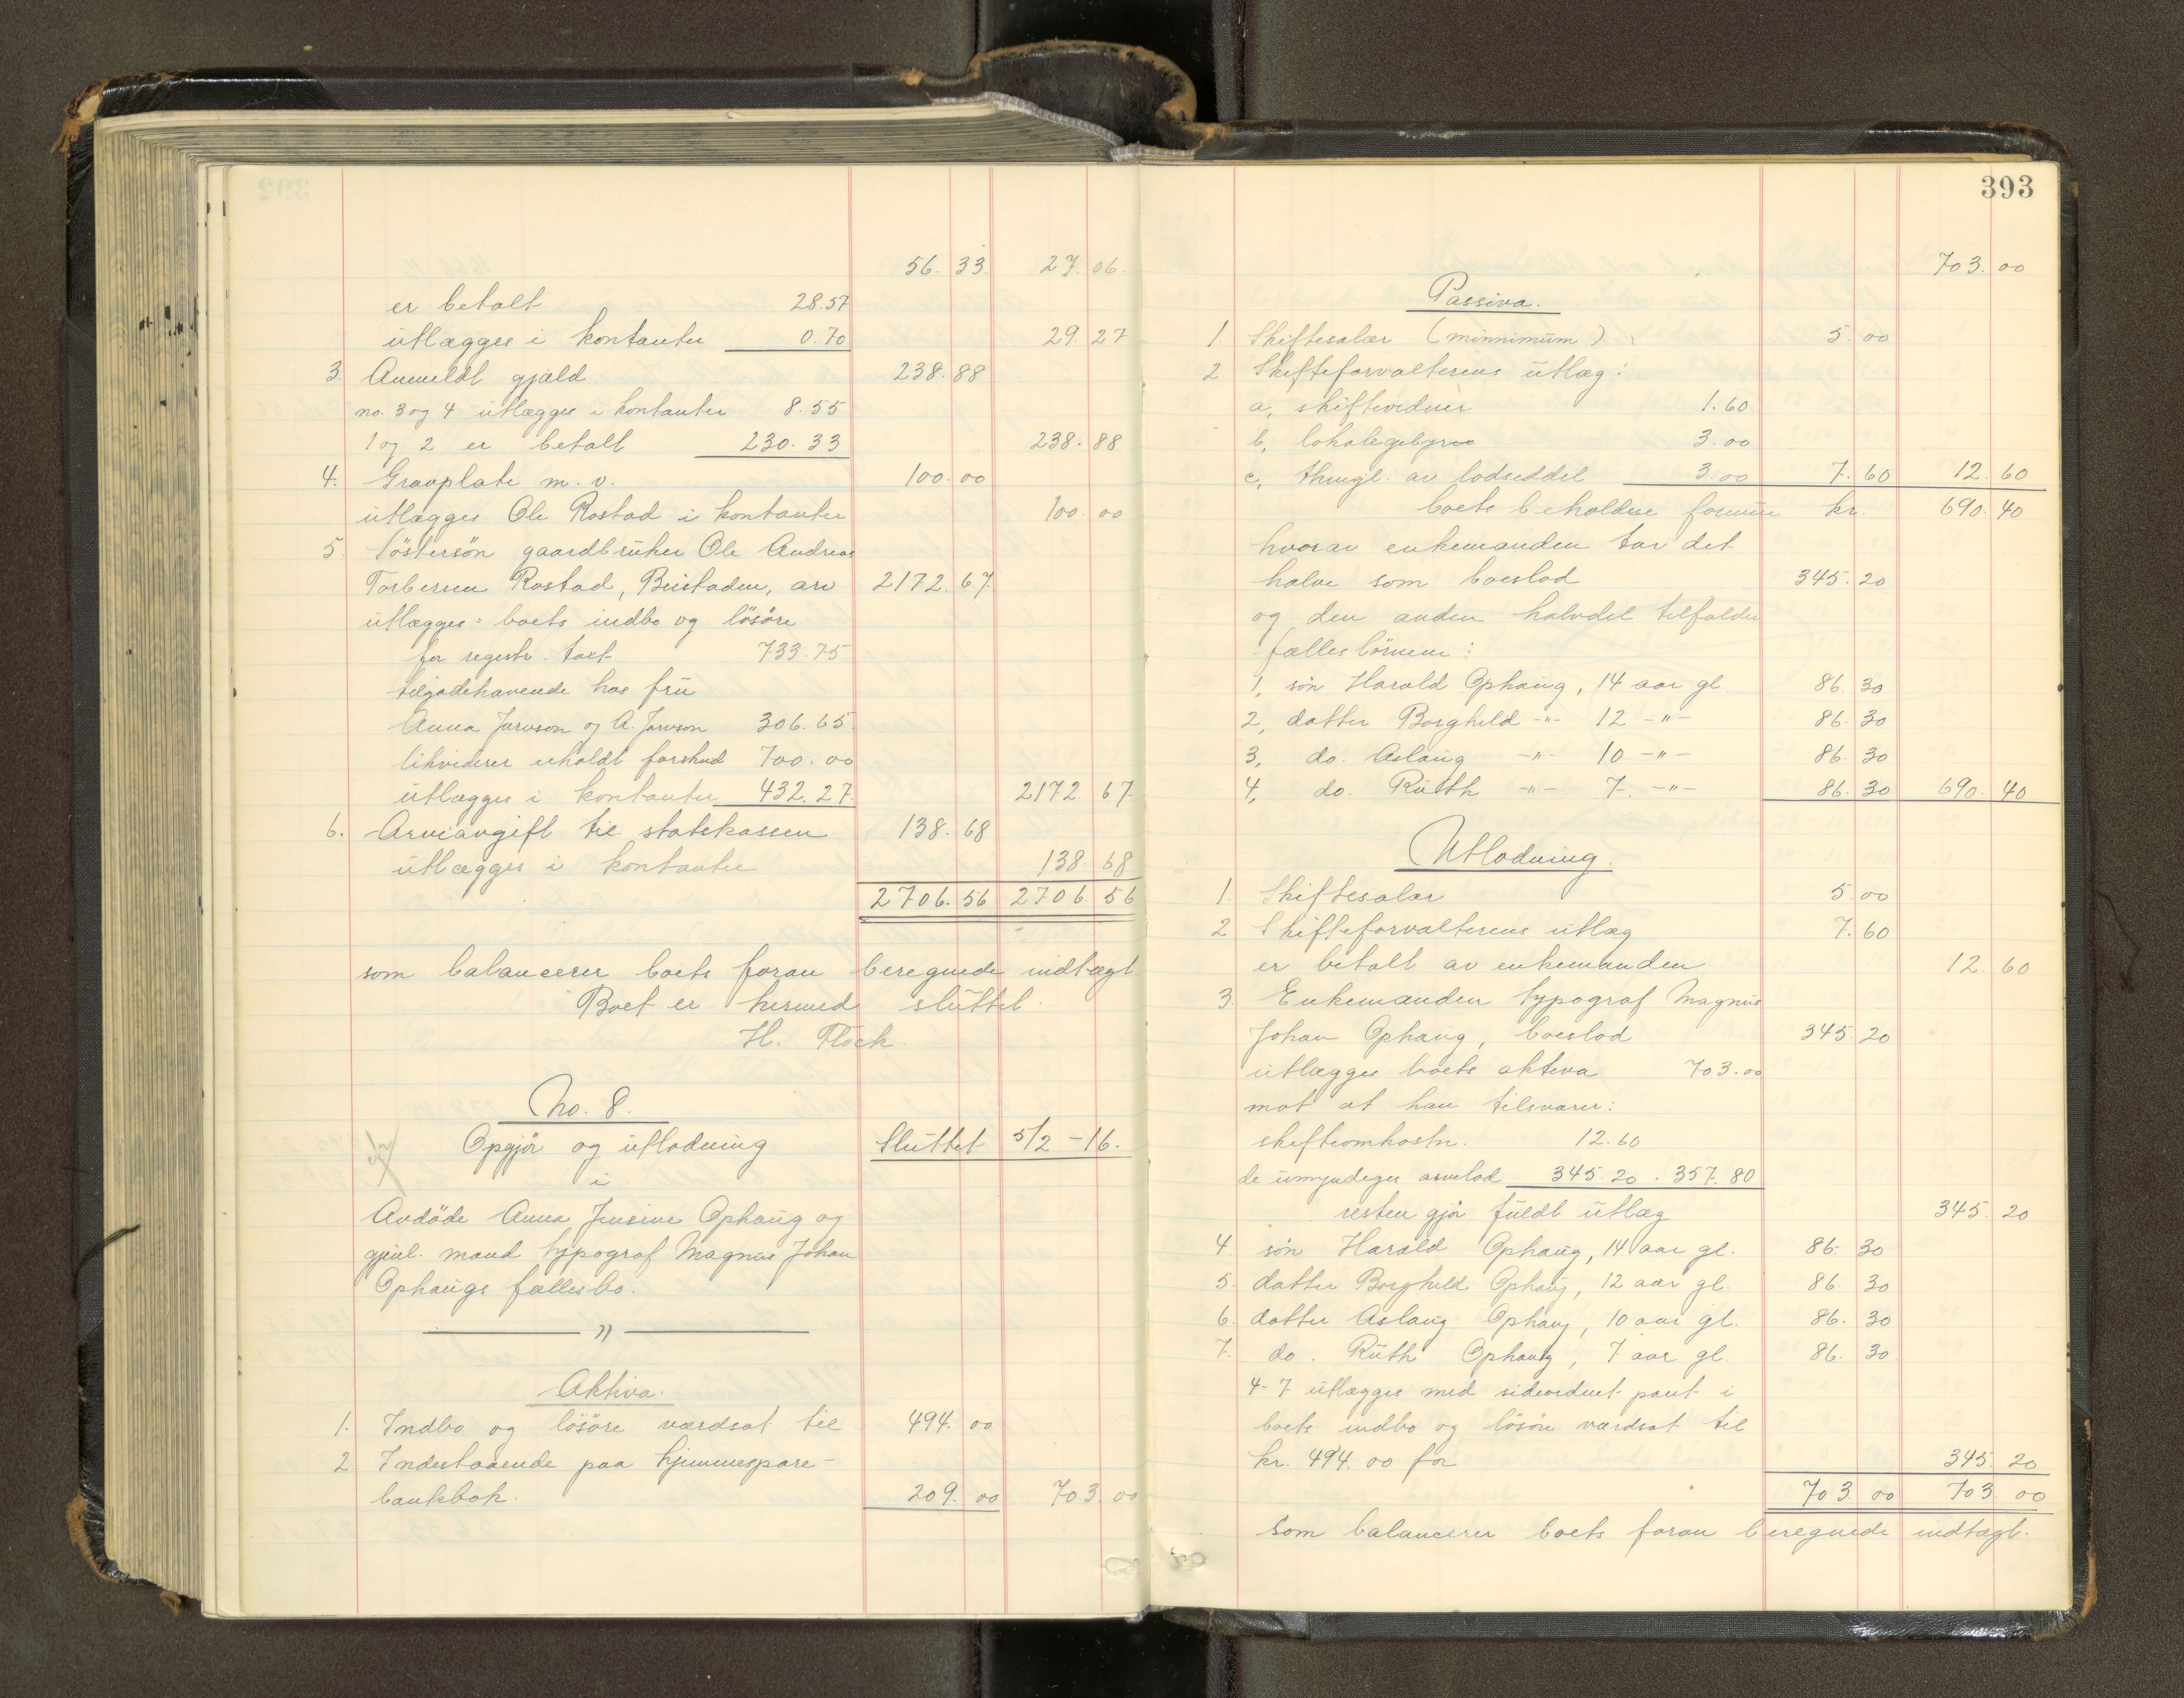 56. 33. 27. 06.
er betalt 28.57
utlægges i kontanter 0.70 29. 27
3. Anmeldt gjæld 238. 88
no. 3 og 4 utlægges i kontanter 8.55
1 og 2 er betalt 230.33 238. 88
4. Gravplate m. v. 100. 00
utlægges Ole Rostad i kontanter 100. 00
5. Søstersøn gaardbruker Ole Andreas
Torbersen Rostad, Beistaden, arv 2172. 67
utlægges: boets indbo og løsøre
for registr. taxt 733.75
tilgodehavende hos fru
Anna Jarvson og A. Jarvson 306.65
likviderer erholdt forskud 700.00
utlægges i kontanter 432.27 2172. 67
6. Arveavgift til statskassen 138. 68
utlægges i kontanter 138. 68
2706. 56 2706. 56
som balancerer boets foran beregnede indtægt
Boet er hermed sluttet.
H. Flock
No. 8.
Opgjør og utlodning Sluttet 5/2 -16.
i
Avdøde Anna Jensine Ophaug og
gjenl. mand typograf Magnus Johan
Ophaugs fællesbo.
"
Aktiva.
1. Indbo og løsøre værdsat til 494. 00
2. Indestaaende paa hjemmespare-
bankbok. 209. 00 703. 00
393
703. 00
Passiva.
1. Skiftesalær (minnimum) 5. 00
2 Skifteforvalterens utlæg:
a, skiftevidner 1.60
b, lokalegebyrer 3.00
c, thingl. av lodseddel 3.00 7. 60 12. 60
boets beholdne formue kr. 690. 40
hvorav enkemanden tar det
halve som boeslod 345. 20
og den anden halvdel tilfalder
fællesbørnene:
1, søn Harald Ophaug, 14 aar gl. 86. 30
2, datter Borghild -"- 12 -"- 86. 30
3, do. Aslaug -"- 10 -"- 86. 30
4, do. Ruth -"- 7. -"- 86. 30 690. 40
Utlodning.
1. Skiftesalær 5. 00
2 Skifteforvalterens utlæg 7. 60
er betalt av enkemanden 12. 60
3. Enkemanden typograf Magnus
Johan Ophaug, boeslod 345. 20
utlægges boets aktiva 703.00
mot at han tilsvarer:
skifteomkostn. 12.60
de umyndiges arvelod 345.20 . 357.80
resten gjør fuldt utlæg 345. 20
4 søn Harald Ophaug, 14 aar gl. 86. 30
5. datter Borghild Ophaug, 12 aar gl. 86. 30
6. datter Aslaug Ophaug, 10 aar gl. 86. 30
7. do. Ruth Ophaug, 7 aar gl. 86. 30
4-7 utlægges med sideordnet pant i
boets indbo og løsøre værdsat til
kr. 494.00 for 345. 20
703. 00 703. 00
som balancerer boets foran beregnede indtægt.